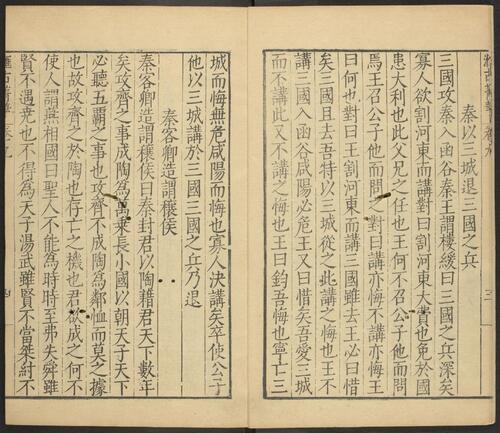 秦以三城退三國之兵
三國攻秦入函谷秦王謂樓緩曰三國之兵深矣
寡人欲割河東而講對曰割河東大費也免於國
患大利也此父兄之任也王何不召公子他而問
焉王召公子他而問之對曰講亦悔不講亦悔王
曰何也對曰王割河東而講三國雖去王必曰惜
矣三國且去吾特以三城從之此講之悔也王不
講三國入函谷咸陽必危王又曰惜矣吾愛三城
而不講此又不講之悔也王曰鈞吾悔也寧亡三
城而悔無危咸陽而悔也寡人決講矣卒使公子
他以三城講於三國三國之兵乃退
秦客卿造謂穰侯
秦客卿造謂穰侯曰秦封君以陶藉君天下數年
矣攻齊之事成陶爲萬乘長小國以朝天子天下
必聽五霸之事也攻齊不成陶爲鄰恤而莫之據
也故攻齊之於陶也存亡之機也君欲成之何不
使人謂燕相國曰聖人不能爲時時至弗失舜雖
賢不遇堯也不得爲天子湯武雖賢不當桀紂不